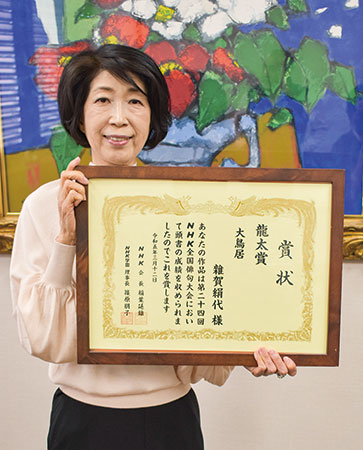 賞状
龍太賞
大鳥居
雜賀絹代 様
あなたの作品は第二十四回
NHK全国俳句大会におい
て頭書の成績を収められま
したのでこれを賞します
令和五年三月十二日
NHK 会長 稲葉延雄
NHK学園 理事長 篠原朋子